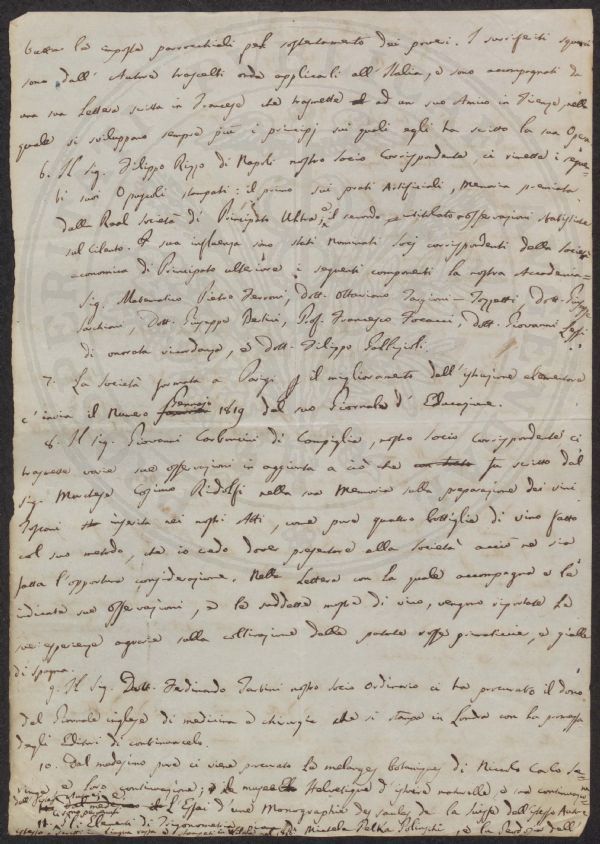 tutta la imposta parrocchiali pel sostentamento dei poveri. I suriferiti squarci
sono dall'Autore trascelti onde applicarli all'Italia, e sono accompagnati da
una sua Lettera scritta in Francese che trasmette ad un suo Amico in Firenze, nella
quale si sviluppano sempre più i principj sui quali egli ha scritto la sua Opera.
6. Il Sig. Filippo Rizzo di Napoli nostro Socio Corrispondente, ci rimette i seguen=
ti suoi Opuscoli stampati: il primo sui prati Artificiali, Memoria premiata
dalla Real Società di Principato Ultra; il secondo intitolato osservazioni statistiche
sul Cilento. A sua influenza sono stati nominati Socj corrispondenti della Società
economica di Principato ulteriore i seguenti componenti la nostra Accademia=
Sig. Matematico Pietro Ferroni, Dott. Ottaviano Targioni-Tozzetti, Dott. Giuseppe
Sarchiani, Dott. Giuseppe Bertini, Prof. Francesco Focacci, Dott. Giovanni Lessi
di onorata ricordanza, e Dott. Filippo Gallizioli.
7. La Società formata a Parigi p il miglioramento dell'istruzione elementare
c'invia il Numero Gennajo 1819 del suo Giornale d'Educazione.
8. Il Sig. Giovanni Carboncini di Campiglia, nostro Socio Corrispondente ci
trasmette varie sue osservazioni in aggiunta a ciò che fu scritto dal
Sig. Marchese Cosimo Ridolfi nella sua Memoria sulla preparazione dei vini
Toscani inserita nei nostri Atti, come pure quattro bottiglie di vino fatto
col suo metodo, che io credo dover presentare alla Società acciò ne sia
fatta l'opportuna considerazione. Nella Lettera con la quale accompagna e le
indicate sue osservazioni, e le suddette mostre di vino, vengono riportate le
sue esperienze agrarie sulla coltivazione delle patate rosse primaticcie, e gialle
di Spagna.
9. Il Sig. Dott. Ferdinando Tartini nostro Socio Ordinario ci ha procurato il dono
del Giornale inglese di medicina e chirurgia che si stampa in Londra con la promessa
degli Editori di continuarcelo.
10. Dal medesimo pure ci viene procurato Le melanges botaniques di Niccolò Carlo Se=
ringe e loro continuazione; il musee Helvetique d'istoria naturelle e sua continuazione
L'Essai d'une Monographie des saules de la Suisse dell'istesso Autore
11. Gli Elementi di Trigonometria di Michela Pelka Polinski, e la